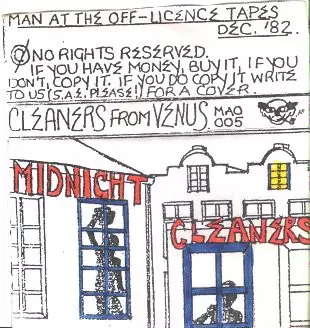 MAN AT THE OFF-LICENCE TAPES
DEC. '82.
NO RIGHTS RESERVED.
IF YOU HAVE MONEY, BUY IT, IF YOU
DON'T, COPY IT. IF YOU DO COPY IT WRITE
TO US (S.A.E. PLEASE!) FOR A COVER.
CLEANERS FROM VENUS
MAO
005
MIDNIGHT
CLEANERS